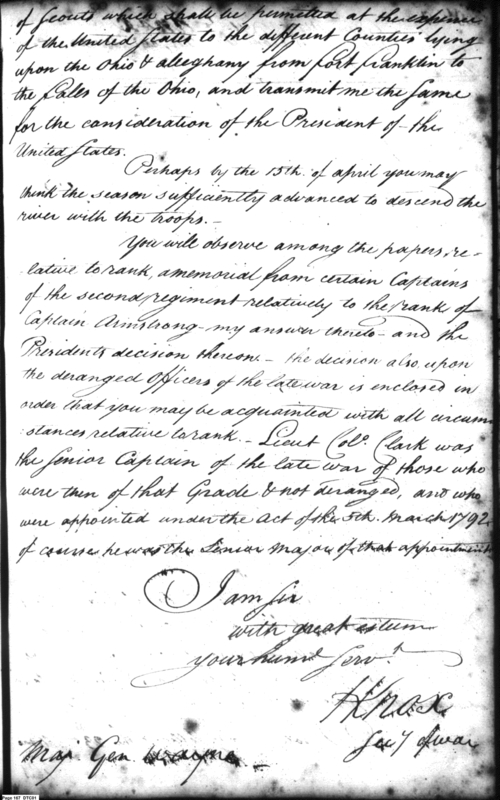 of Scouts which shall be permitted at the expence
of the United States to the different Counties lying
upon the Ohio & alleghany from fort franklin to
the falls of the Ohio, and transmit me the same
for the consideration of the President of the
United States.
Perhaps by the 15th. of april you may
think the season sufficiently advanced to descend the
river with the troops.—
You will observe among the papers, re-
lative to rank, a memorial from certain Captains
of the second regiment relatively to the rank of
Captain Armstrong — my answer thereto — and the
Presidents decision thereon. — the decision also, upon
the deranged Officers of the late war is enclosed in
order that you may be acquainted with all circum
stances relative to rank. — Lieut Colo. Clark was
the Senior Captain of the late war of those who
were then of that Grade & not deranged, and who
were appointed under the Act of the 5th. March 1792.
of course he was the Senior Major of that appointment
I am Sir
with great esteem
your hume Servt.
H Knox
Secy of war
Maj Gen Wayne —
Page 167 DTC01